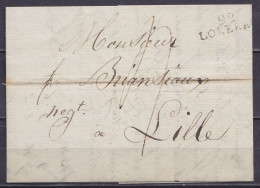 92
LOKEREN
Monsieur
Briansiaux
negt.
a Lille